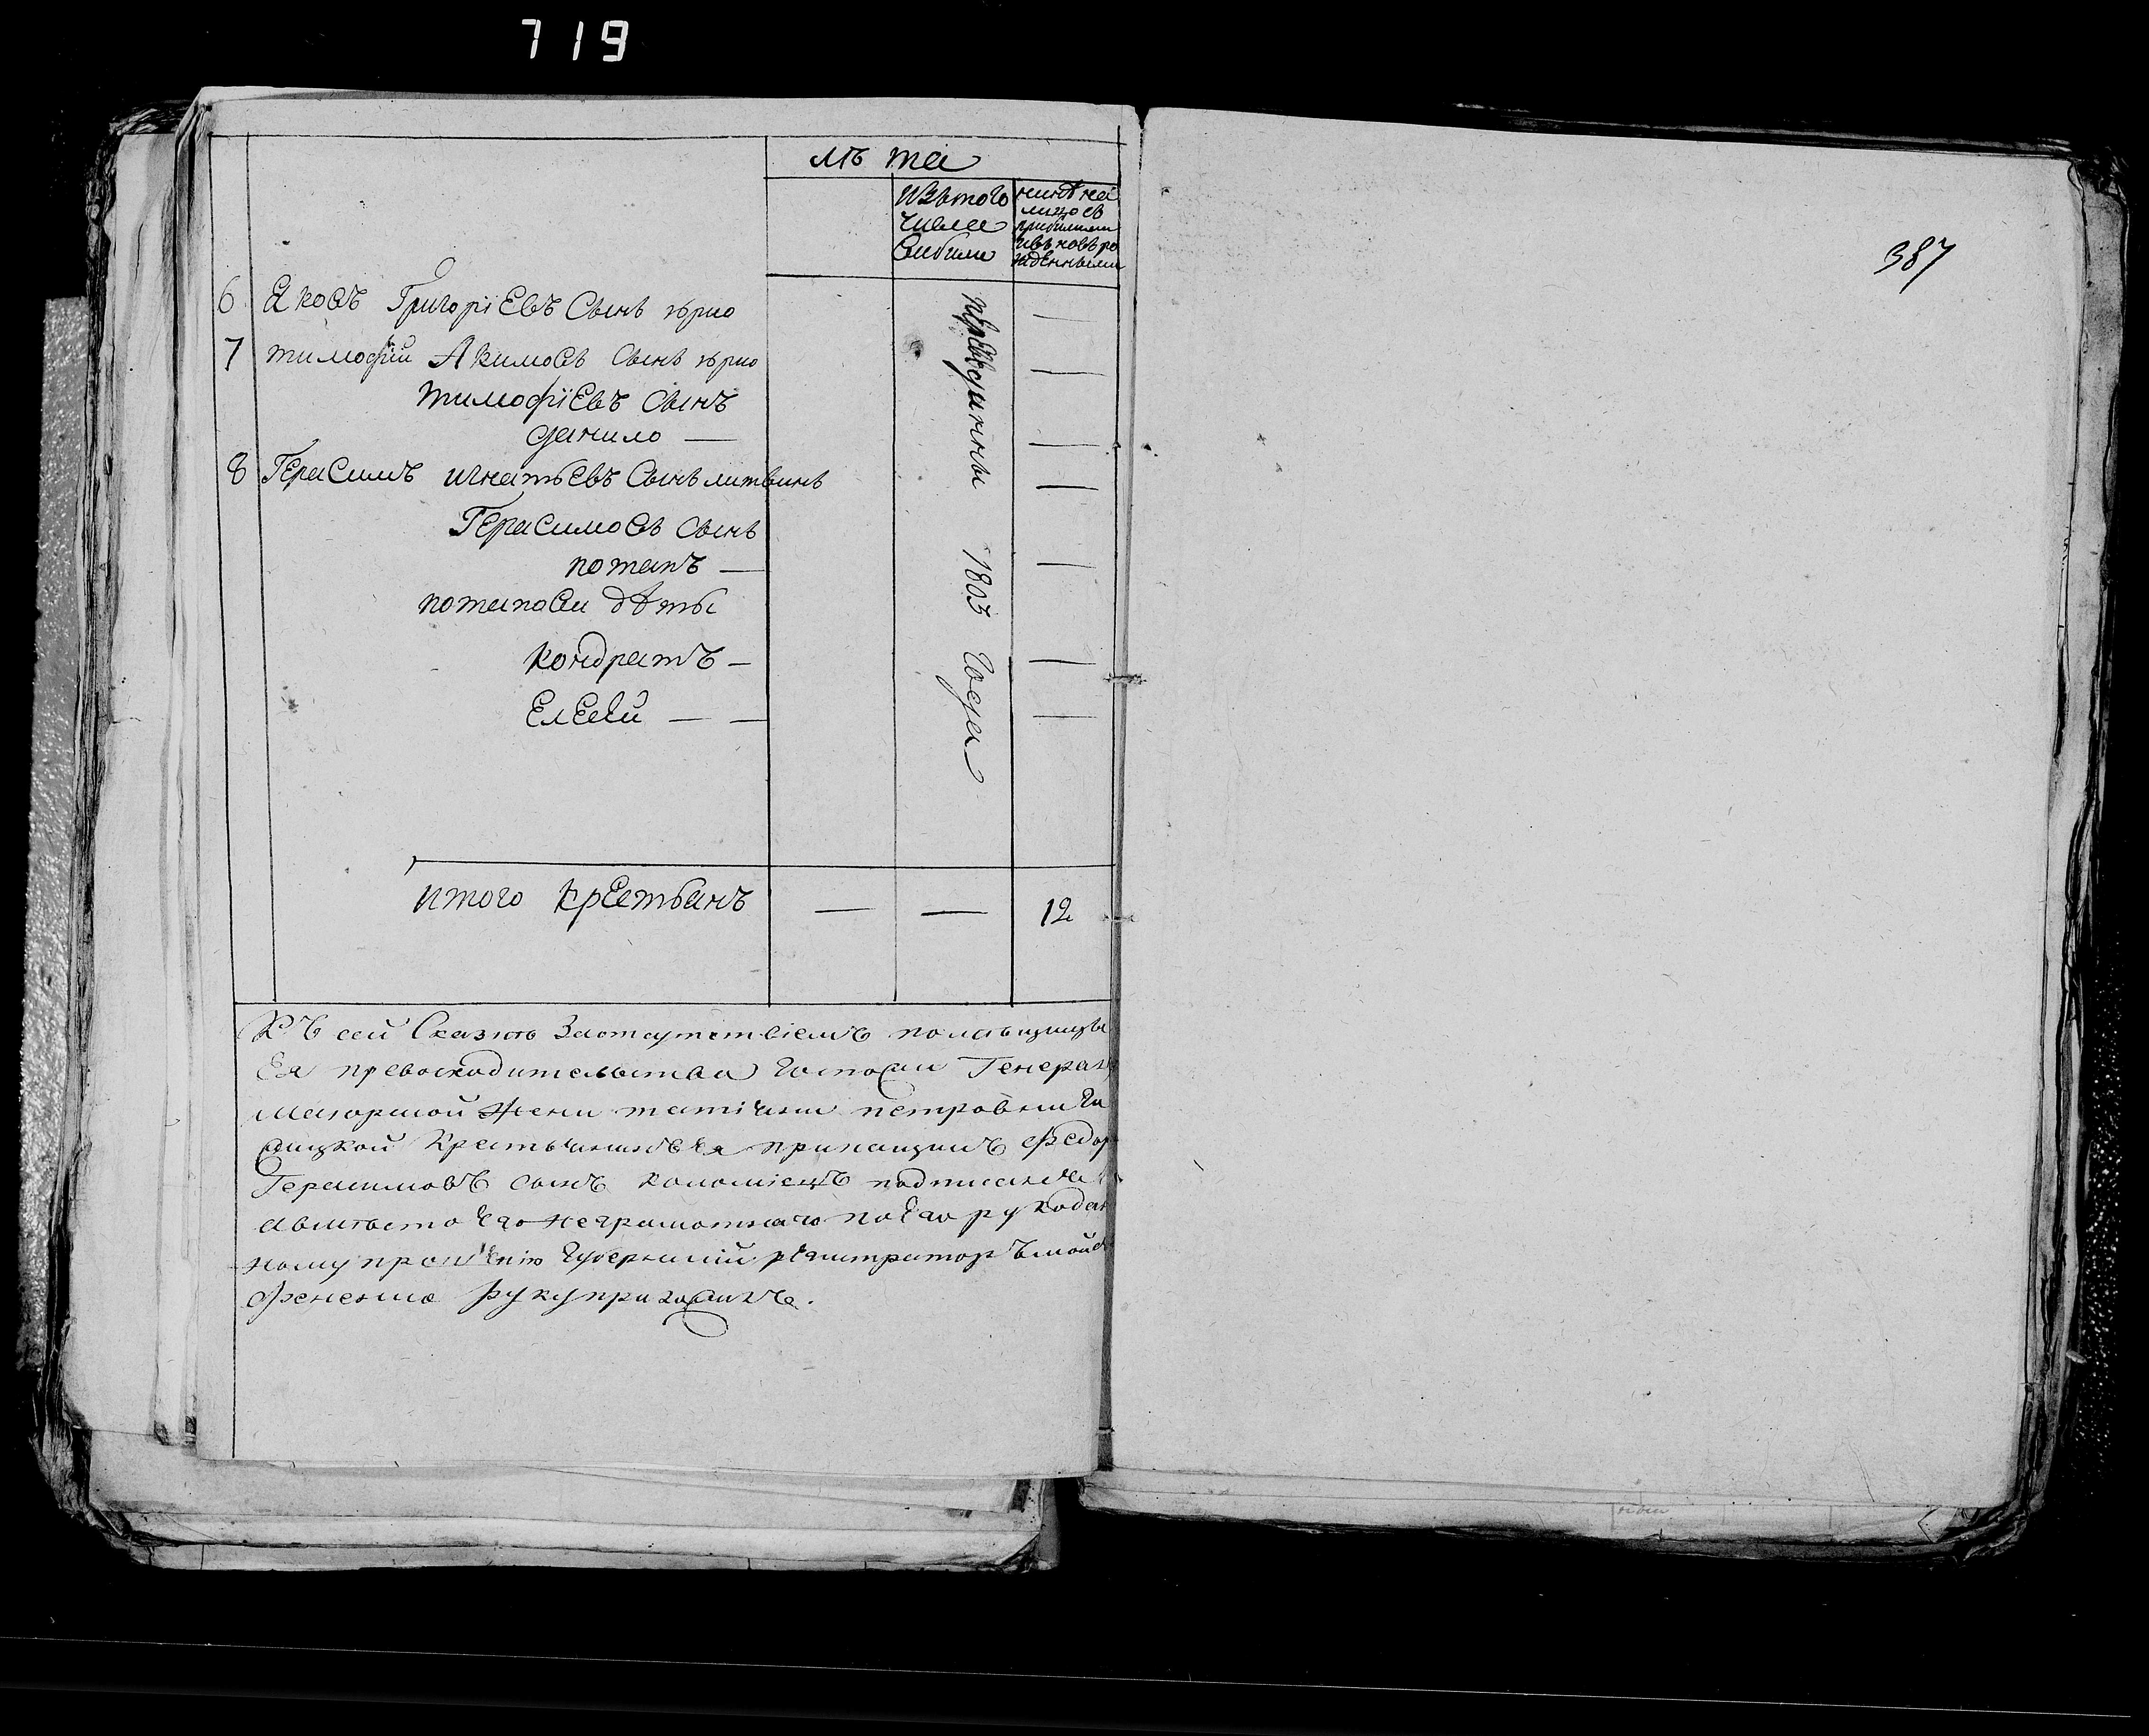 719
387
лѣта
изъ того
числа
выбыли
нинѣ на
лицо съ
прибилими
ивъновь ро
жденными
6 Яковъ Григоріевъ Сынъ юрко
7 тимофій Акимовъ Сынъ юрко
тимофіевъ сынъ
данило —
8 Герасимъ игнатьевъ Сынъ литвинъ
Герасимовъ сынъ
потапъ —
потапови дѣти
кондратъ —
Елесѣй — —
1803 года
итого крестьянъ — — 12
Къ сей Сказкѣ За отсутствіемъ помѣщицы
Ея превосходительства госпожи Генералъ
Маіоршой жени татіяни петровни
Крестьянинъ Ея прикащикъ Федор
Герасимовъ сынъ коломіецъ подписался
а вместо Его неграмотнаго по Его рукодан
ному прошенію Губернскій регистраторъ
руку приложилъ.